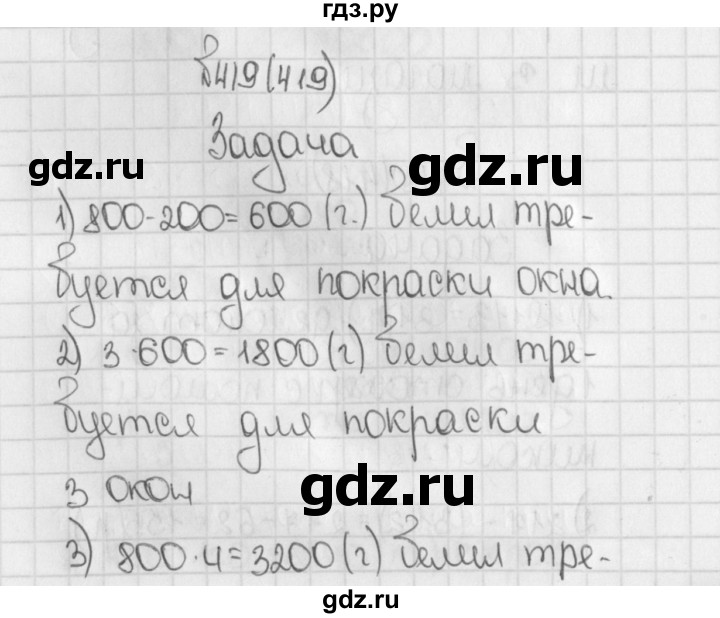 гдз.ру
№419(419)
Задача
gdz.ru
gdz.ru
1) 800-200=600 (г.) белил тре-
буется для покраски окна.
2) 3·600=1800 (г) белил тре-
буется для покраски
3 окон
gdz.ru
3) 800·4=3200 (г) белил тре-
gdz.ru